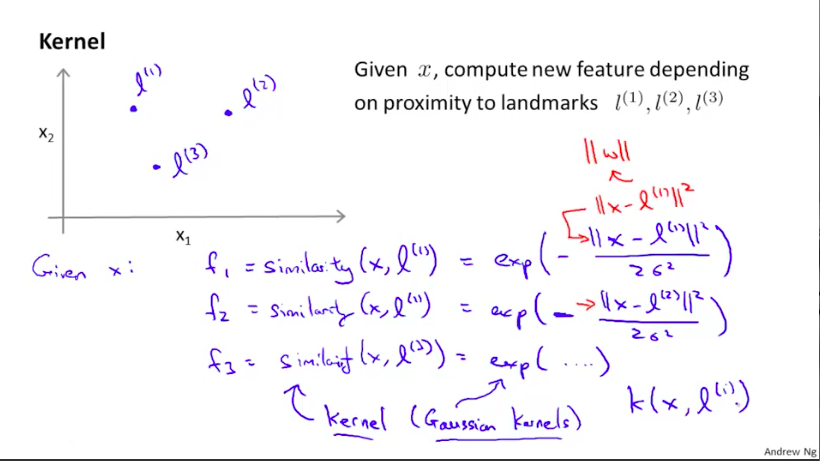 Kernel
Given x, compute new feature depending
on proximity to landmarks l⁽¹⁾, l⁽²⁾, l⁽³⁾
x₂
x₁
l⁽¹⁾
l⁽²⁾
l⁽³⁾
||w||
||x - l⁽¹⁾||²
Given x: f₁ = similarity(x, l⁽¹⁾) = exp(- ||x - l⁽¹⁾||² / 2σ²)
f₂ = similarity(x, l⁽¹⁾) = exp(- ||x - l⁽²⁾||² / 2σ²)
f₃ = similarity(x, l⁽³⁾) = exp(....)
kernel (Gaussian kernels)
k(x, l⁽ⁱ⁾)
Andrew Ng